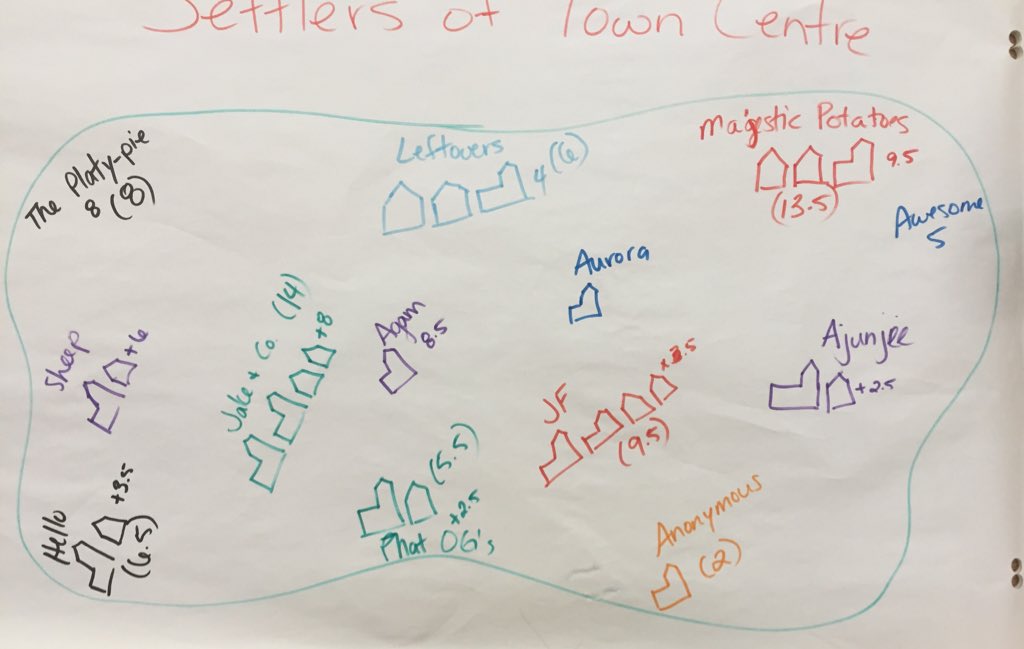 Settlers of Town Centre
The Platy-pie
8 (8)
Leftovers
4 (6)
Majestic Potatoes
9.5
(13.5)
Awesome
5
Aurora
Sheep
+6
Jake + Co. (14)
+8
Again
8.5
JF
(9.5)
Ajunjee
+2.5
Hello
+3.5
(6.5)
(5.5)
+2.5
Phat OG's
Anonymous
(2)